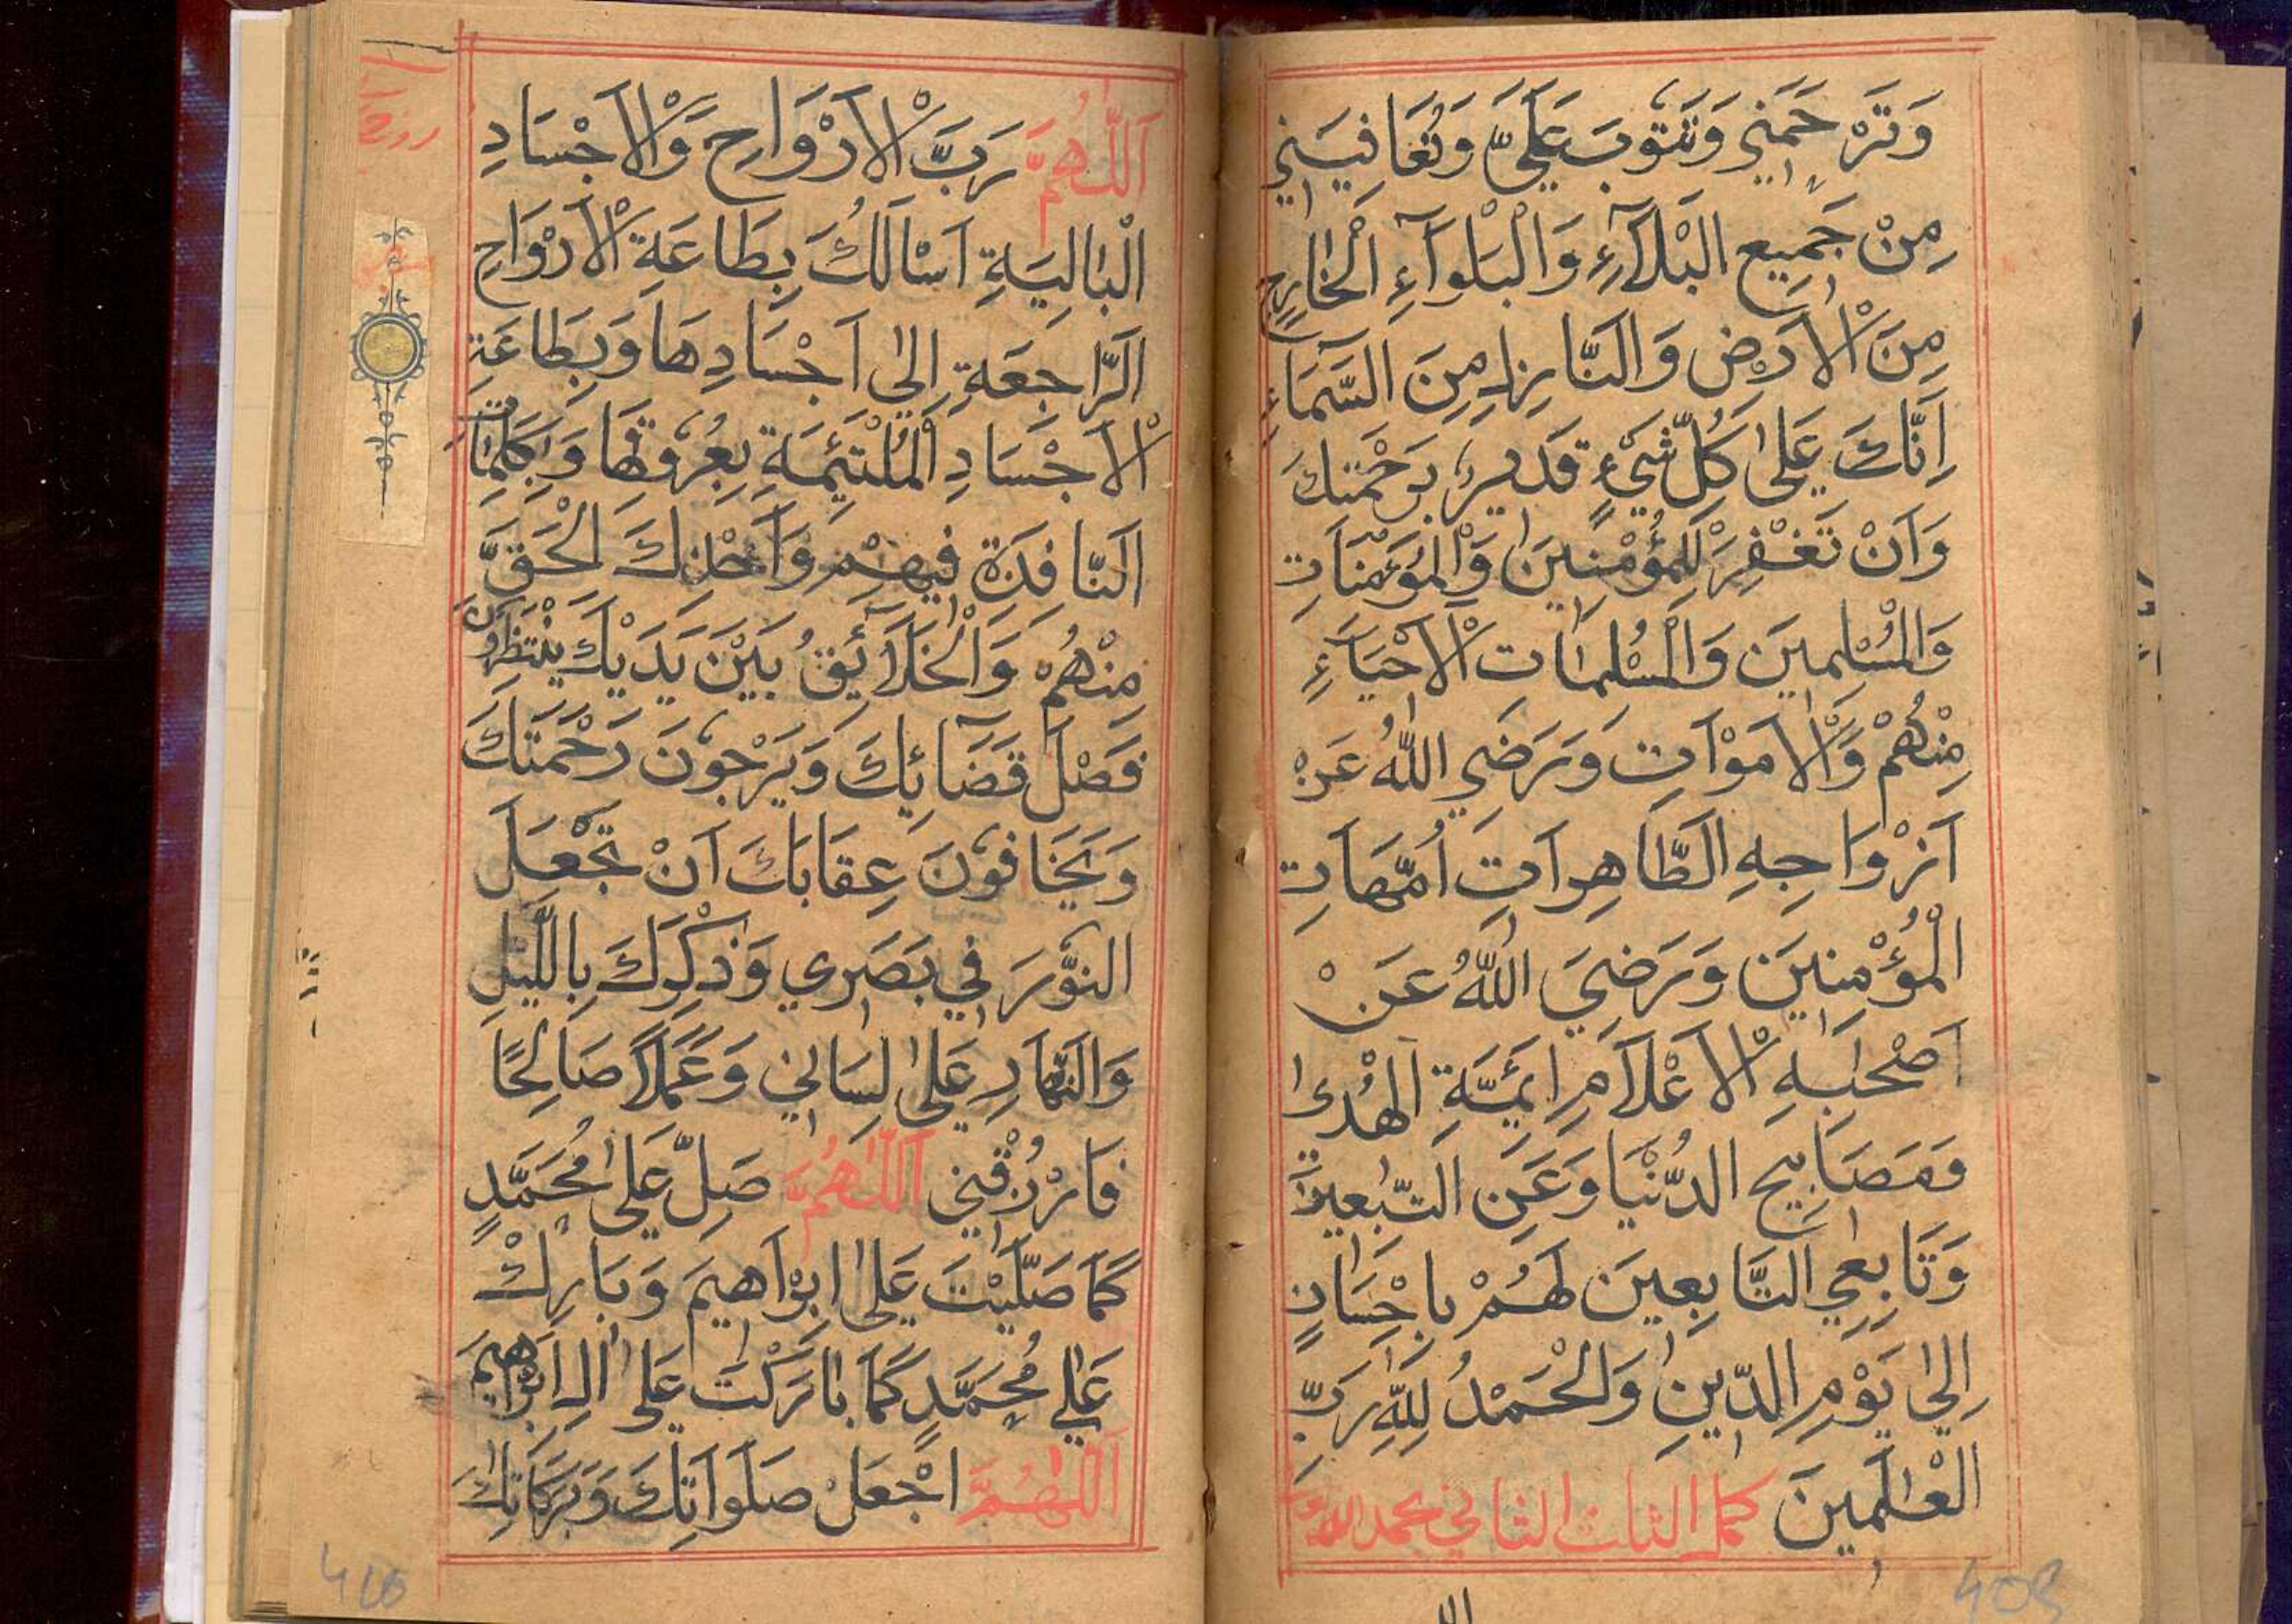 وَتَرْحَمَنِي وَتَتُوبَ عَلَيَّ وَتُعَافِيَنِي
مِنْ جَمِيعِ الْبَلَآءِ وَالْبَلْوَآءِ الْخَارِجِ
مِنَ الْاَرْضِ وَالنَّازِلِ مِنَ السَّمَآءِ
اِنَّكَ عَلَى كُلِّ شَيْءٍ قَدِيرٌ بِرَحْمَتِكَ
وَاَنْ تَغْفِرَ لِلْمُؤْمِنِينَ وَالْمُؤْمِنَاتِ
وَالْمُسْلِمِينَ وَالْمُسْلِمَاتِ الْاَحْيَآءِ
مِنْهُمْ وَالْاَمْوَاتِ وَرَضِيَ اللّٰهُ عَنْ
اَزْوَاجِهِ الطَّاهِرَاتِ اُمَّهَاتِ
الْمُؤْمِنِينَ وَرَضِيَ اللّٰهُ عَنْ
اَصْحَابِهِ الْاَعْلَامِ اَئِمَّةِ الْهُدَى
وَمَصَابِيحِ الدُّنْيَا وَعَنِ التَّابِعِينَ
وَتَابِعِي التَّابِعِينَ لَهُمْ بِاِحْسَانٍ
اِلَى يَوْمِ الدِّينِ وَالْحَمْدُ لِلّٰهِ رَبِّ
الْعَالَمِينَ كمل الثلث الثاني بحمد الله
408
اَللّٰهُمَّ رَبَّ الْاَرْوَاحِ وَالْاَجْسَادِ
الْبَالِيَةِ اَسْاَلُكَ بِطَاعَةِ الْاَرْوَاحِ
الرَّاجِعَةِ اِلَى اَجْسَادِهَا وَبِطَاعَةِ
الْاَجْسَادِ الْمُلْتَئِمَةِ بِعُرُوقِهَا وَبِكَلِمَاتِكَ
النَّافِذَةِ فِيهِمْ وَاَخْذِكَ الْحَقَّ
مِنْهُمْ وَالْخَلَآئِقُ بَيْنَ يَدَيْكَ يَنْتَظِرُونَ
فَصْلَ قَضَآئِكَ وَيَرْجُونَ رَحْمَتَكَ
وَيَخَافُونَ عِقَابَكَ اَنْ تَجْعَلَ
النُّورَ فِي بَصَرِي وَذِكْرَكَ بِاللَّيْلِ
وَالنَّهَارِ عَلَى لِسَانِي وَعَمَلًا صَالِحًا
فَارْزُقْنِي اَللّٰهُمَّ صَلِّ عَلَى مُحَمَّدٍ
كَمَا صَلَّيْتَ عَلَى اِبْرَاهِيمَ وَبَارِكْ
عَلَى مُحَمَّدٍ كَمَا بَارَكْتَ عَلَى اٰلِ اِبْرَاهِيمَ
اَللّٰهُمَّ اجْعَلْ صَلَوَاتِكَ وَبَرَكَاتِكَ